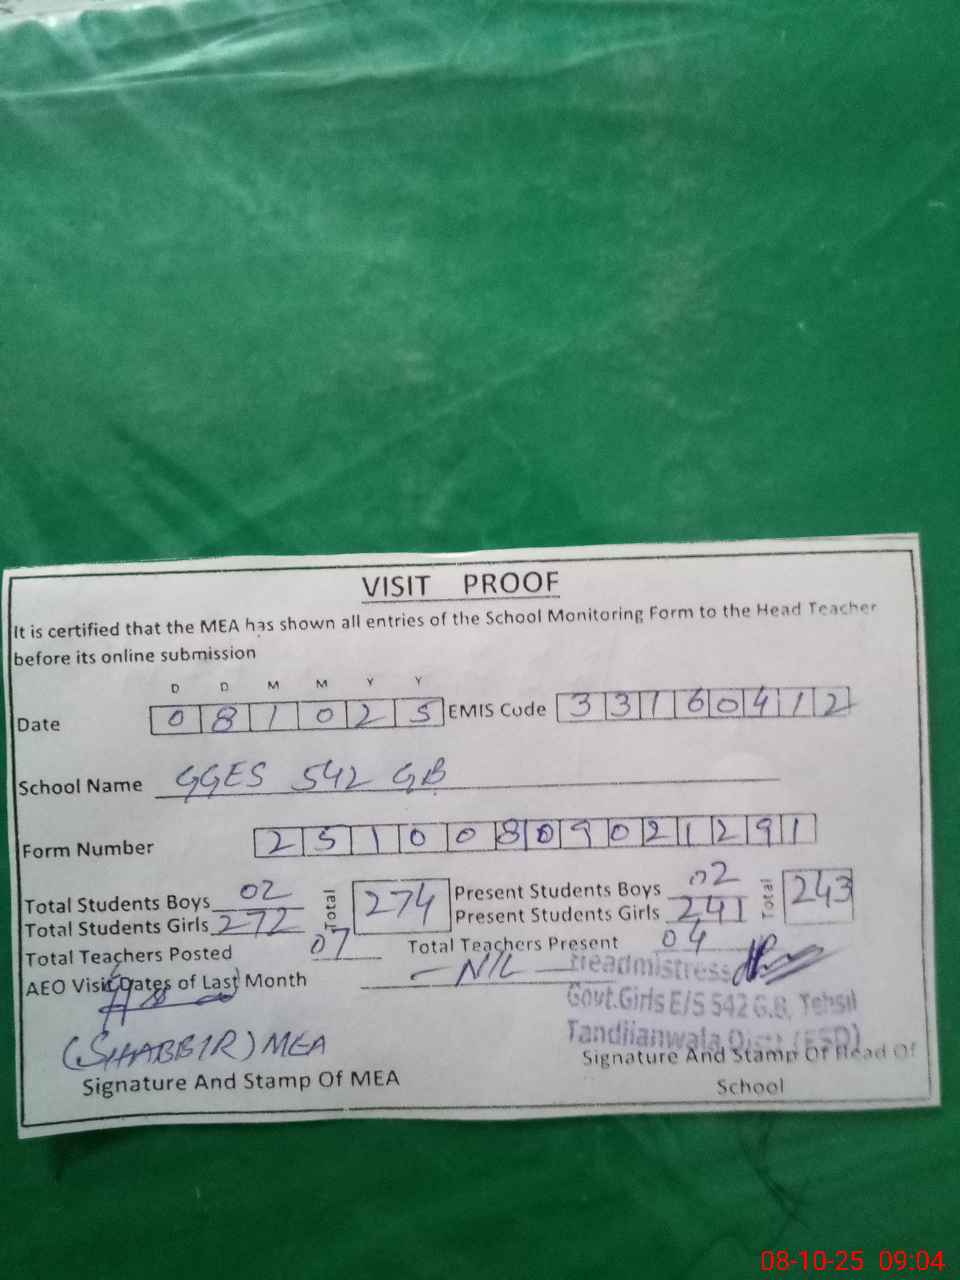 VISIT PROOF
It is certified that the MEA has shown all entries of the School Monitoring Form to the Head Teacher
before its online submission
D D M M Y Y
Date 0 8 1 0 2 5 EMIS Code 3 3 1 6 0 4 1 2
School Name GGES 542 GB
Form Number 2 5 1 0 0 8 0 9 0 2 1 2 9 1
Total Students Boys 02 Total 274 Present Students Boys 02 Total 243
Total Students Girls 272 Present Students Girls 241
Total Teachers Posted 07 Total Teachers Present 04
AEO Visit Dates of Last Month - NIL -
Headmistress
Govt.Girls E/S 542 G.B, Tehsil
Tandlianwala Distt (FSD)
(SHABBIR) MEA
Signature And Stamp Of MEA
Signature And Stamp Of Head Of
School
08-10-25 09:04